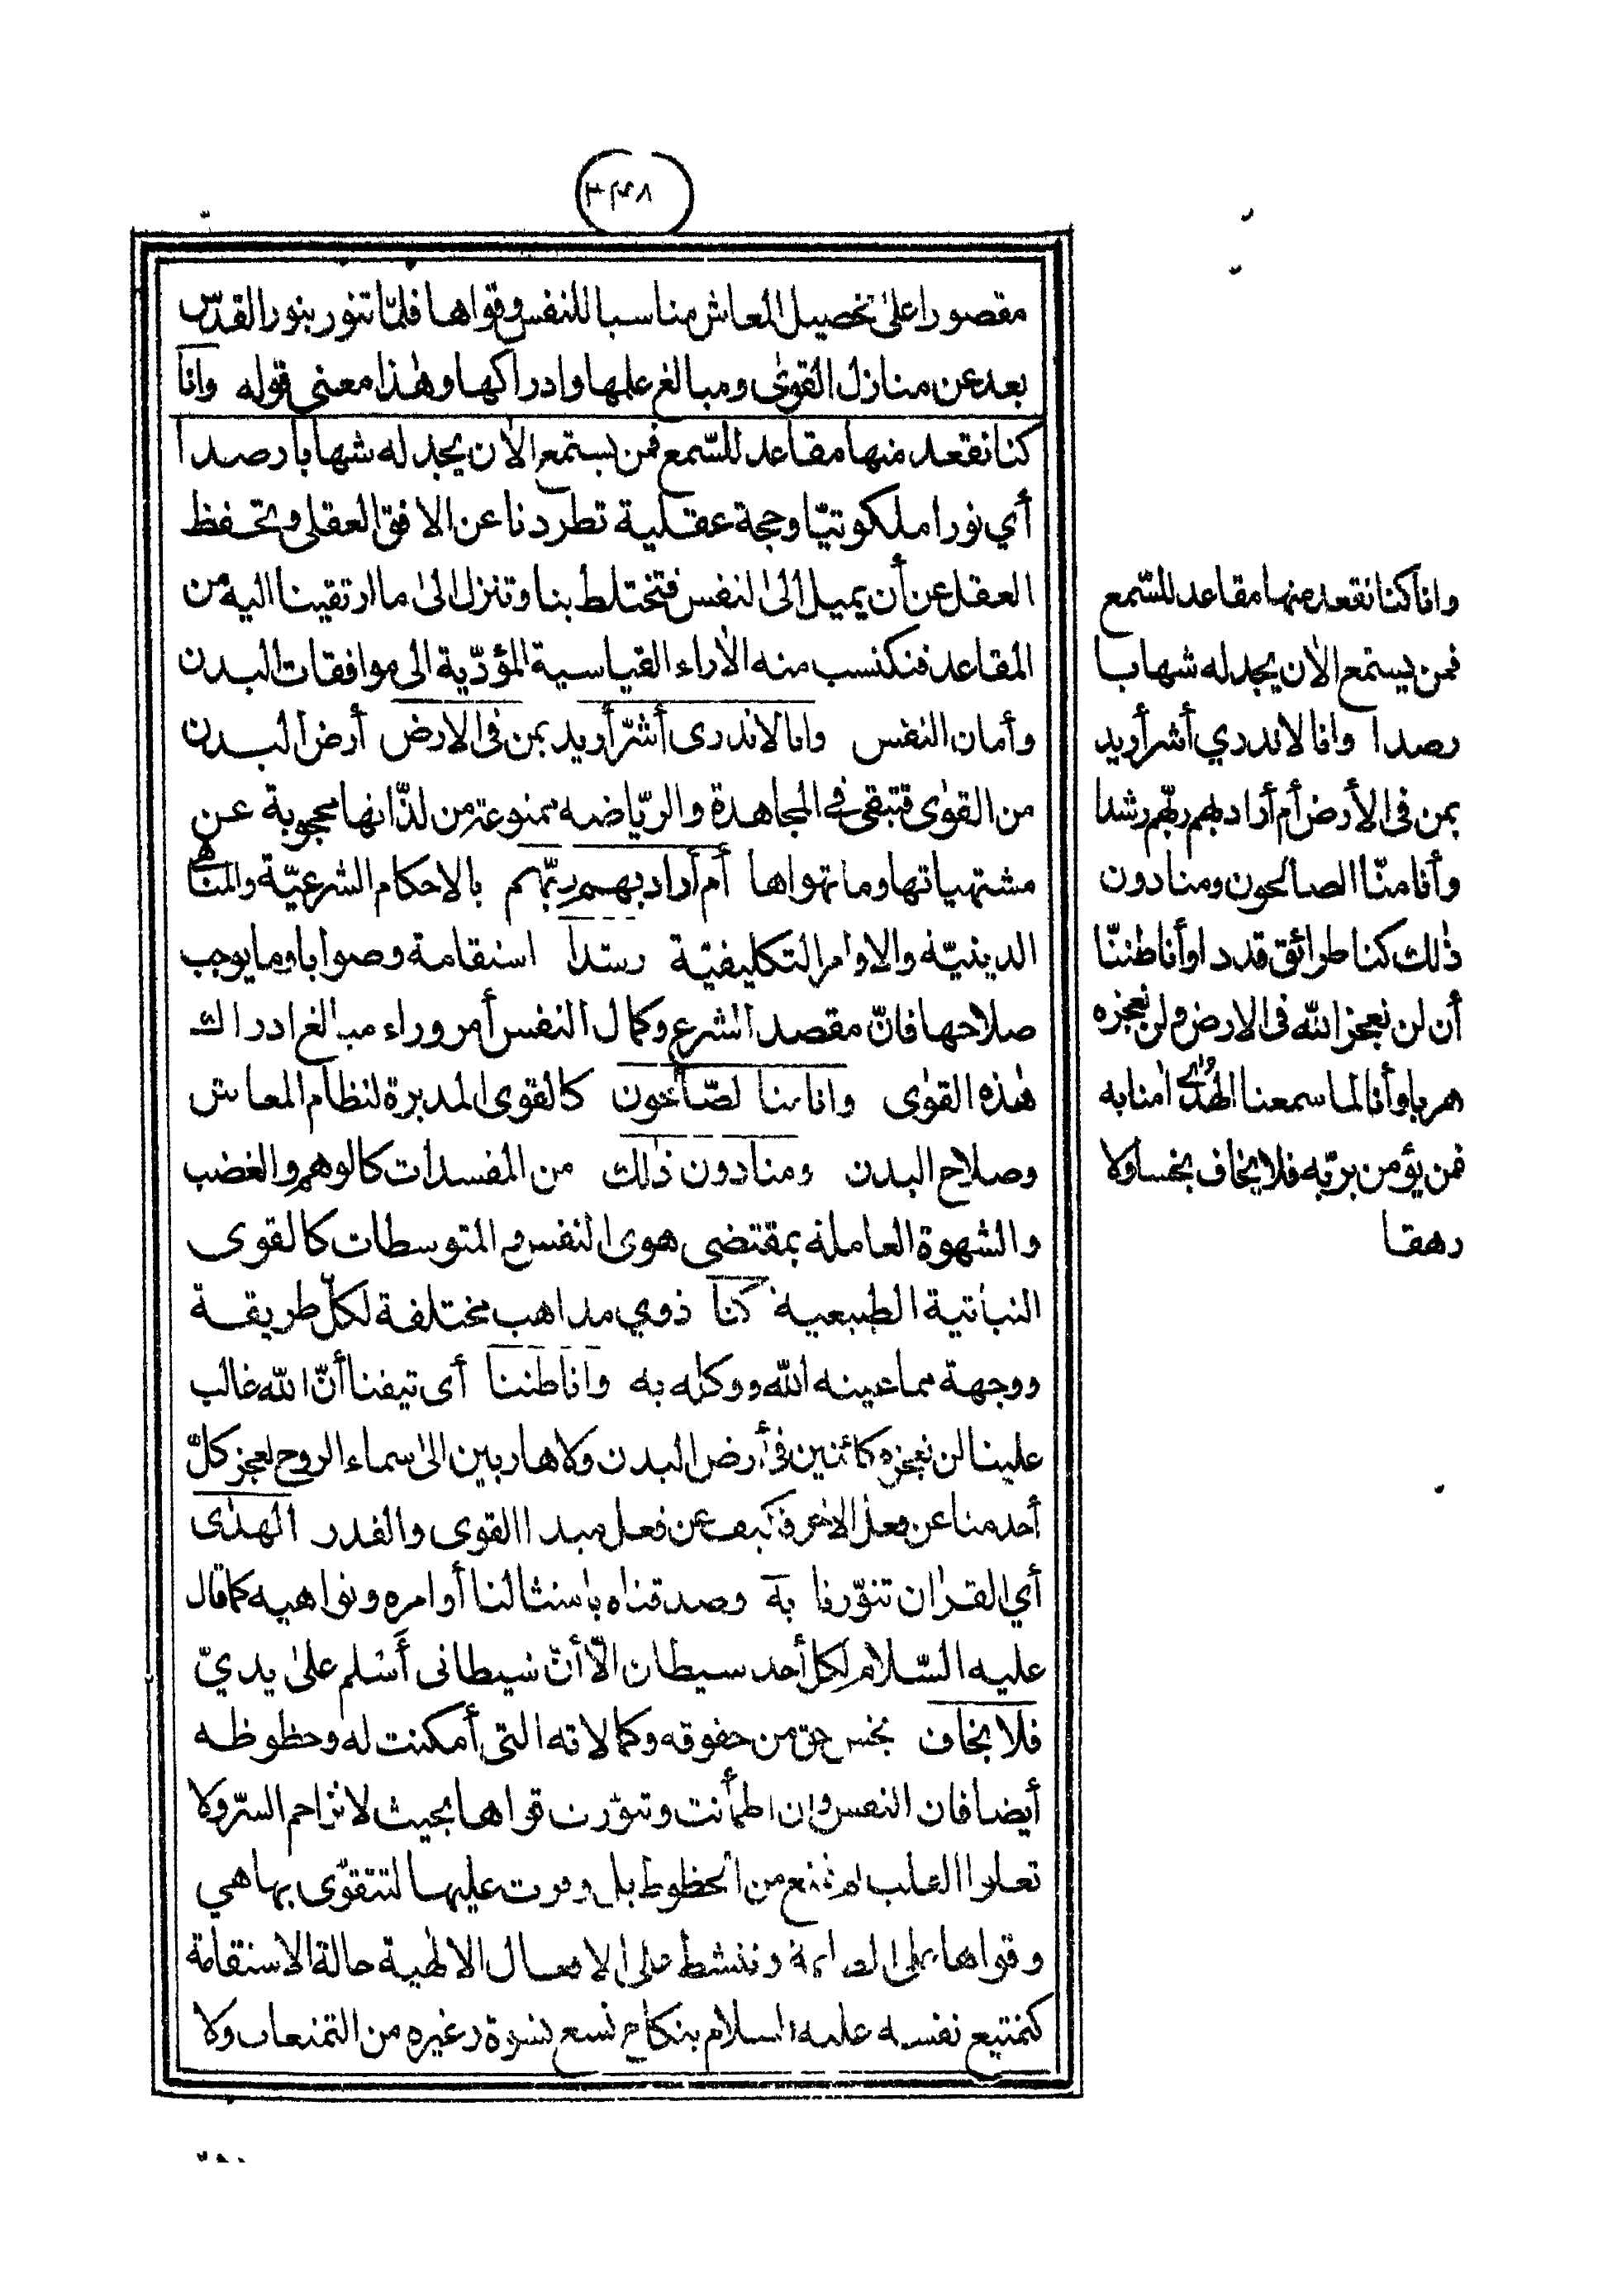 ٣٤٨
مقصورا على تحصيل المعاش مناسبا للنفس وقواها فلمّا تنور بنور القدّس
بعد عن منازل القوى ومبالغ علمها وادراكها وهٰذا معنى قوله وانا
كنا نقعد منها مقاعد للسّمع فمن يستمع الاٰن يجد له شهابا رصدا
أي نورا ملكوتيّا وحجة عقلية تطردنا عن الافق العقلى وتحفظ
العقل عن أن يميل الىٰ النفس فتختلط بنا وتنزل الىٰ ما ارتقينا اليه من
المقاعد فنكتسب منه الاٰراء القياسية المؤدّية الى موافقات البدن
وأمان النفس وانا لا ندرى أشرّ أريد بمن فى الارض أرض البدن
من القوٰى فتبقى في المجاهدة والرّياضه ممنوعة من لذّاتها محجوبة عن
مشتهياتها وما تهواها أم أراد بهم ربّهم بالاحكام الشرعيّة والمناهى
الدينيّه والاوامر التكليفيّة رشدا استقامة وصوابا وما يوجب
صلاحها فانّ مقصد الشرع وكمال النفس أمر وراء مبالغ ادراك
هٰذه القوٰى وانا منا الصّالحون كالقوى المدبرة لنظام المعاش
وصلاح البدن ومنا دون ذٰلك من المفسدات كالوهم والغضب
والشهوة العاملة بمقتضى هوى النفس والمتوسطات كالقوى
النباتية الطبيعية كنا ذوي مذاهب مختلفة لكلّ طريقة
ووجهة مما عينه اللّه ووكله به وانا ظننا أى تيقنا أنّ اللّه غالب
علينا لن نعجزه كائنين فى أرض البدن ولا هاربين الىٰ سماء الروح لعجز كلّ
أحد منا عن فعل الاٰخر فكيف عن فعل مبدا القوى والقدر الهدٰى
أي القراٰن تنوّرنا به وصدقناه بامتثالنا أوامره ونواهيه كما قال
عليه السّلام لكل أحد شيطان الّا أنّ شيطانى أَسْلم علىٰ يديّ
فلا يخاف بخس حق من حقوقه وكمالاته التى أمكنت له وحظوظه
أيضا فان النفس وان اطمأنت وتنوّرت قواها بحيث لا تزاحم السرّ ولا
تعلوا القلب لم تمنع من الحظوظ بل وفرت عليها لتتقوّى بها هي
وقواها على الطاعة وتنشط على الافعال الالٰهية حالة الاستقامة
كتمتيع نفسه عليه السلام بنكاح تسع نسوة وغيره من التمتعات ولا
وانا كنا نقعد منها مقاعد للسّمع
فمن يستمع الاٰن يجد له شهابا
رصدا وانا لا ندري أشر أريد
بمن فى الأرض أم أراد بهم ربّهم رشدا
وأنا منّا الصالحون ومنا دون
ذٰلك كنا طرائق قددا وأنا ظننّا
أن لن نعجز اللّه فى الارض ولن نعجزه
هربا وأنا لما سمعنا الهُدٰى اٰمنا به
فمن يؤمن بربّه فلا يخاف بخسا ولا
رهقا